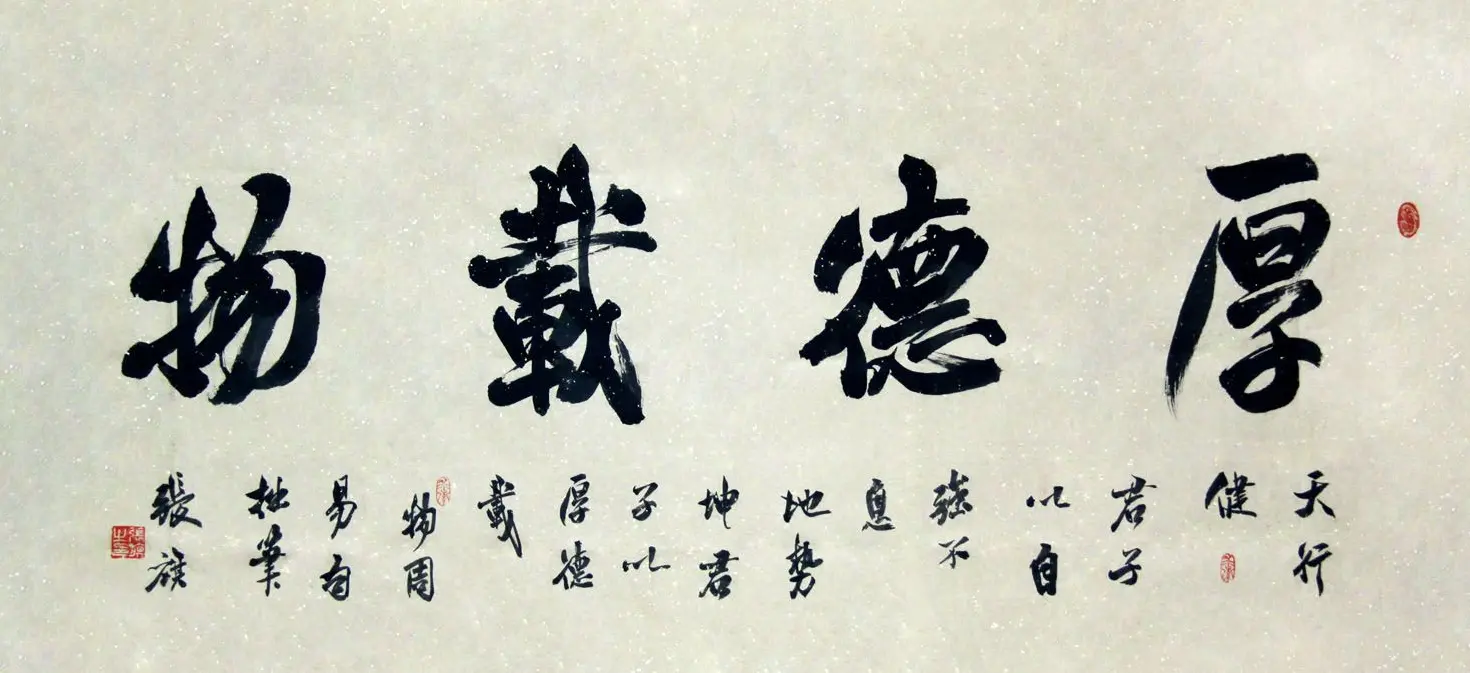 厚德載物
天行
健
君子
以自
強不
息
地勢
坤君
子以
厚德
載
物周
易句
拙筆
張旗